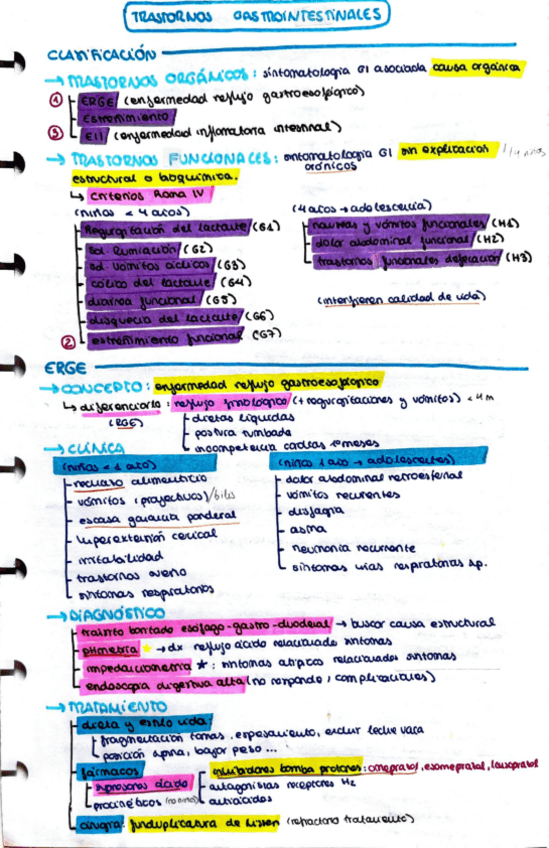 TRASTORNOS GASTROINTESTINALES
CLASIFICACIÓN
→ TRASTORNOS ORGÁNICOS: sintomatología GI asociada causa orgánica
① ERGE (enfermedad reflujo gastroesofágico)
Estreñimiento
③ EII (enfermedad inflamatoria intestinal)
→ TRASTORNOS FUNCIONALES: sintomatología GI sin explicación 1/4 niños
crónicos
estructural o bioquímica.
↳ Criterios Roma IV
(niños < 4 años)
Regurgitación del lactante (G1)
sd. Rumiación (G2)
sd. vómitos cíclicos (G3)
cólico del lactante (G4)
diarrea funcional (G5)
disquecia del lactante (G6)
② estreñimiento funcional (G7)
(4 años → adolescencia)
nauseas y vómitos funcionales (H1)
dolor abdominal funcional (H2)
trastornos funcionales defecación (H3)
(interfieren calidad de vida)
ERGE
→ CONCEPTO: enfermedad reflujo gastroesofágico
↳ diferenciarlo: reflujo fisiológico (+ regurgitaciones y vómitos) < 4m
(RGE)
dietas líquidas
postura tumbada
incompetencia cardias 1º meses
→ CLÍNICA
(niños < 1 año)
rechazo alimenticio
vómitos (proyectivos)/bilis
escasa ganancia ponderal
hiperextensión cervical
irritabilidad
trastornos sueño
síntomas respiratorios
(niños 1 año → adolescentes)
dolor abdominal retroesternal
vómitos recurrentes
disfagia
asma
neumonía recurrente
síntomas vías respiratorias sp.
→ DIAGNÓSTICO
tránsito baritado esófago-gastro-duodenal → buscar causa estructural
phmetría ★ → dx reflujo ácido relacionado síntomas
impedanciometría ★: síntomas atípicos relacionados síntomas
endoscopia digestiva alta (no responde, complicaciones)
→ TRATAMIENTO
dieta y estilo vida
fragmentación tomas, espesamiento, excluir leche vaca
posición supina, bajar peso ...
fármacos
supresores ácido
inhibidores bomba protones: omeprazol, esomeprazol, lansoprazol
antagonistas receptores H2
antiácidos
procinéticos
cirugía: funduplicatura de Nissen (refractario tratamiento)